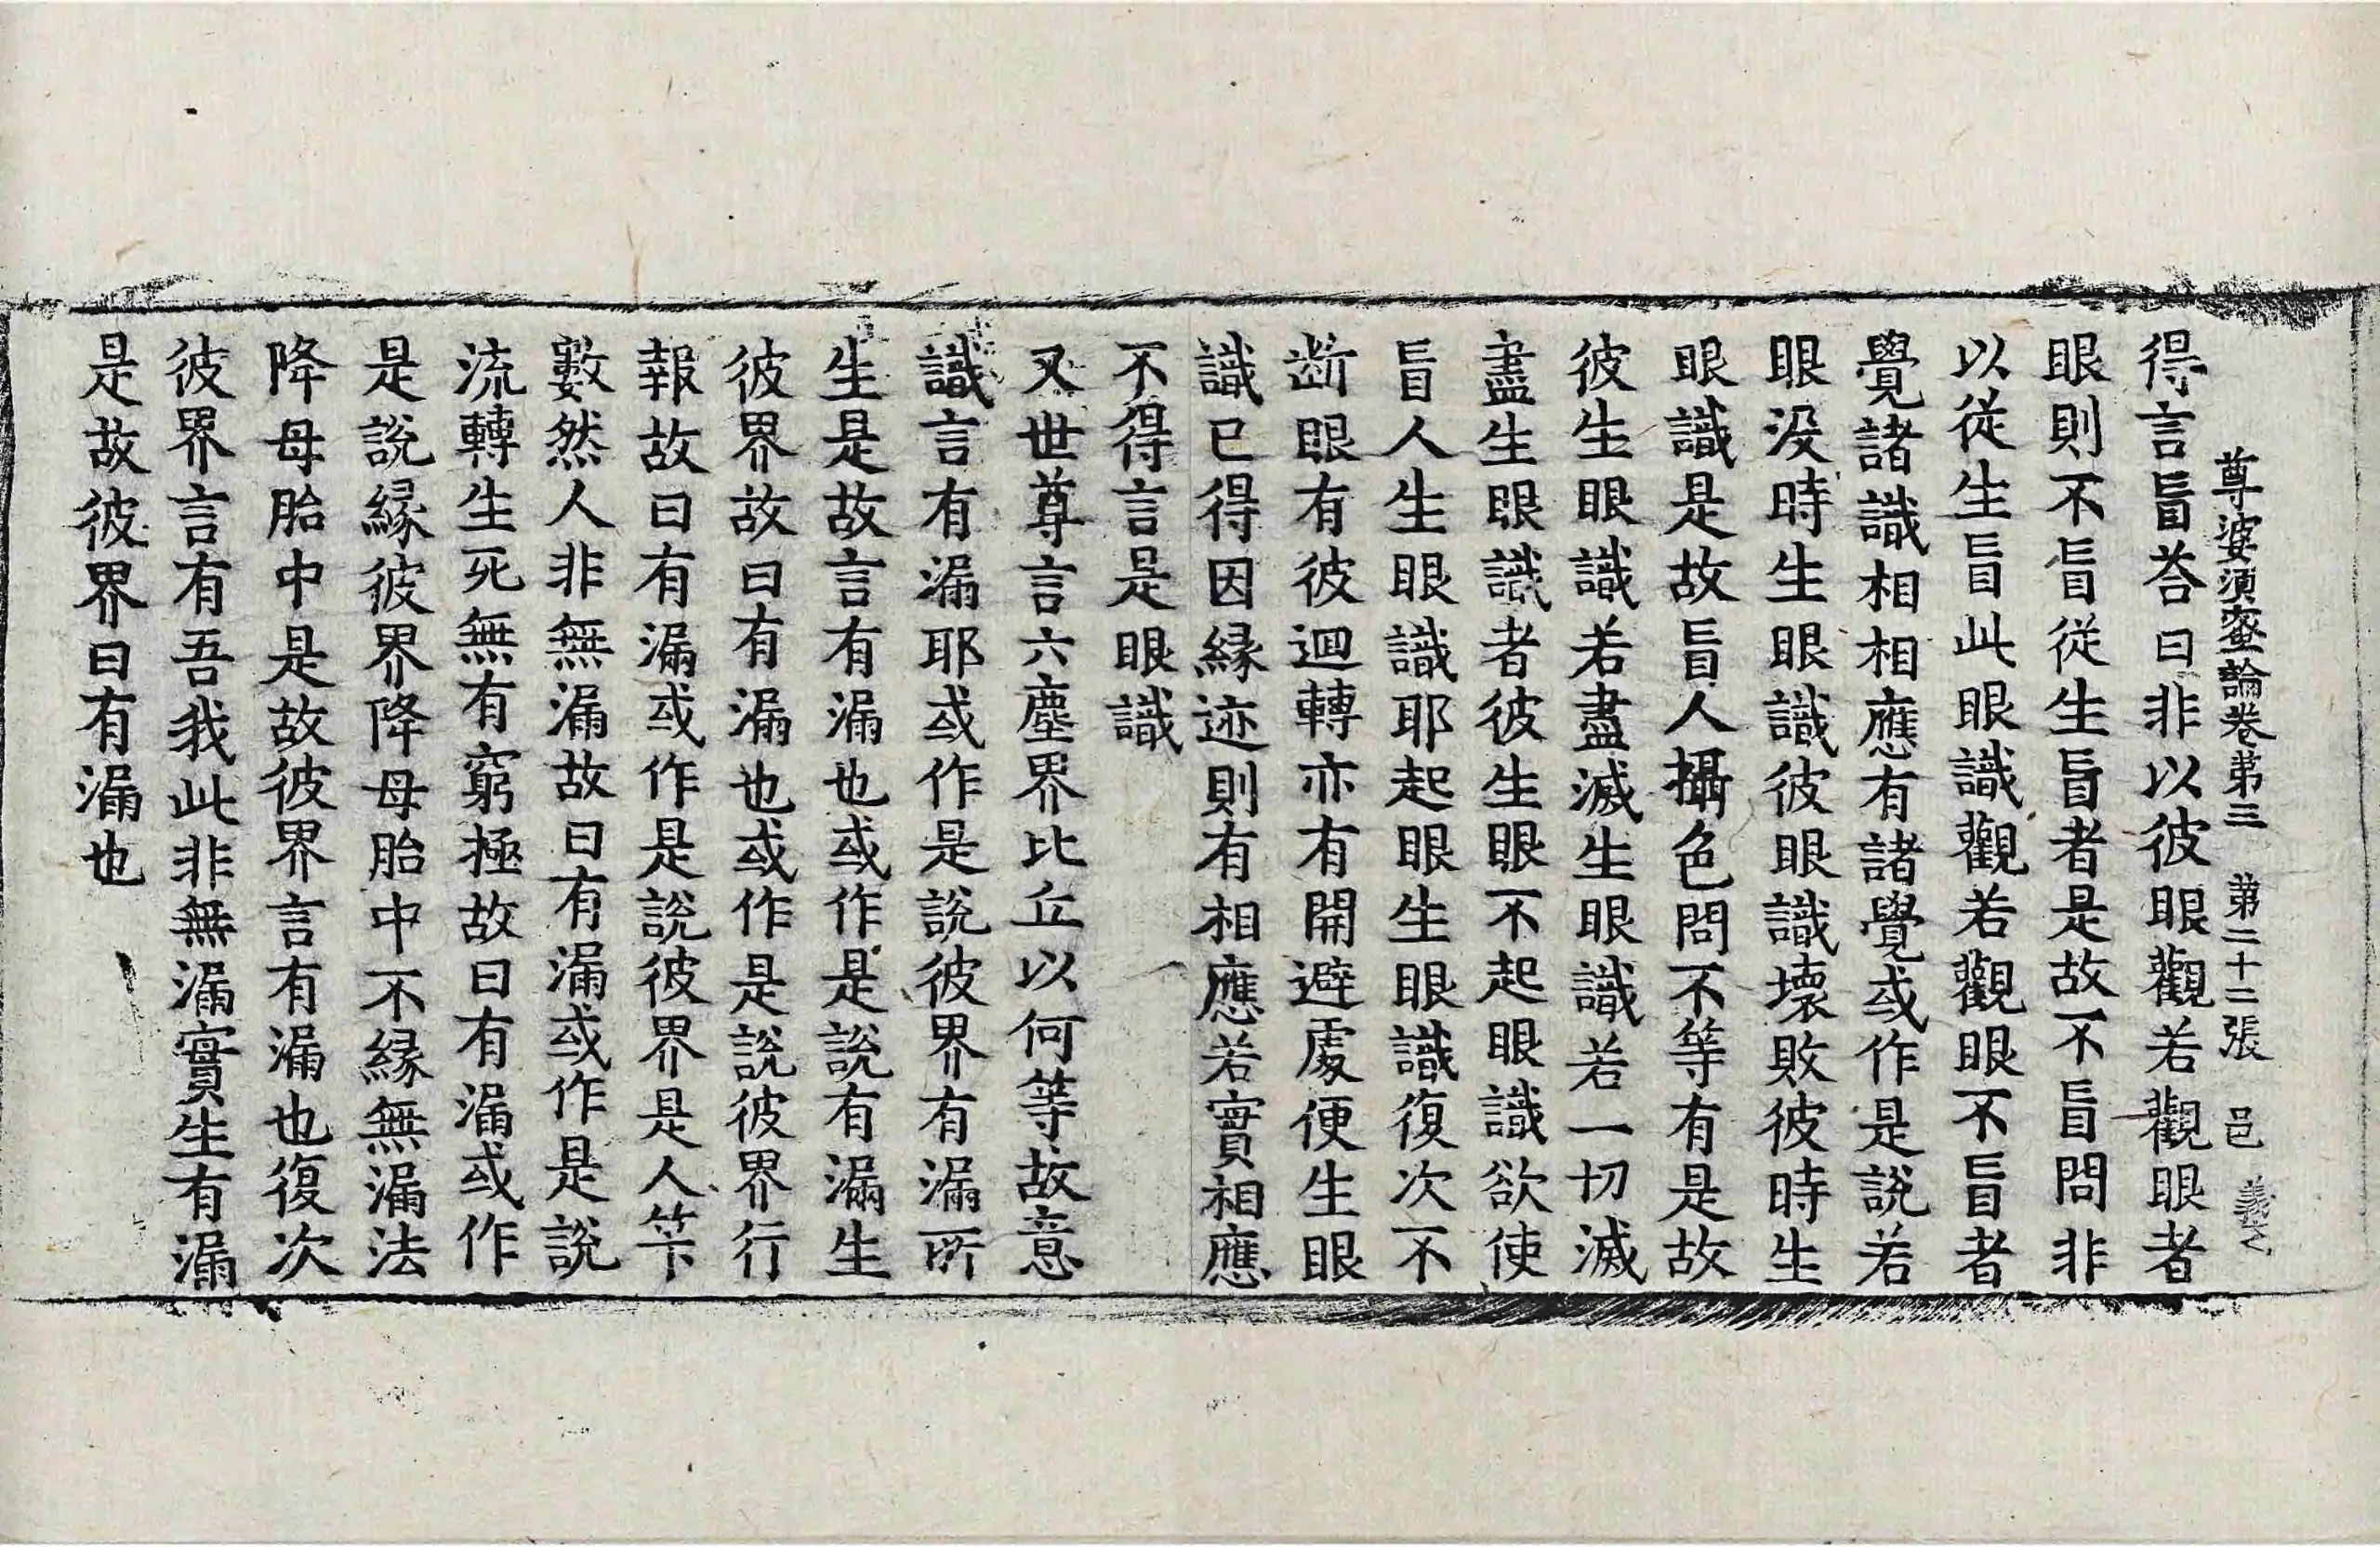 尊婆須蜜論卷第三 第二十二張 邑
得言盲荅曰非以彼眼觀若觀眼者
眼則不盲從生盲者是故不盲問非
以從生盲此眼識觀若觀眼不盲者
覺諸識相相應有諸覺或作是說若
眼没時生眼識彼眼識壞敗彼時生
眼識是故盲人攝色問不等有是故
彼生眼識若盡滅生眼識若一切滅
盡生眼識者彼生眼不起眼識欲使
盲人生眼識耶起眼生眼識復次不
断眼有彼迴轉亦有開避處便生眼
識已得因縁迹則有相應若實相應
不得言是眼識
又世尊言六塵界比丘以何等故意
識言有漏耶或作是說彼界有漏所
生是故言有漏也或作是說有漏生
彼界故曰有漏也或作是說彼界行
報故曰有漏或作是說彼界是人竿
數然人非無漏故曰有漏或作是說
流轉生死無有窮極故曰有漏或作
是說縁彼界降母胎中不縁無漏法
降母胎中是故彼界言有漏也復次
彼界言有吾我此非無漏實生有漏
是故彼界曰有漏也